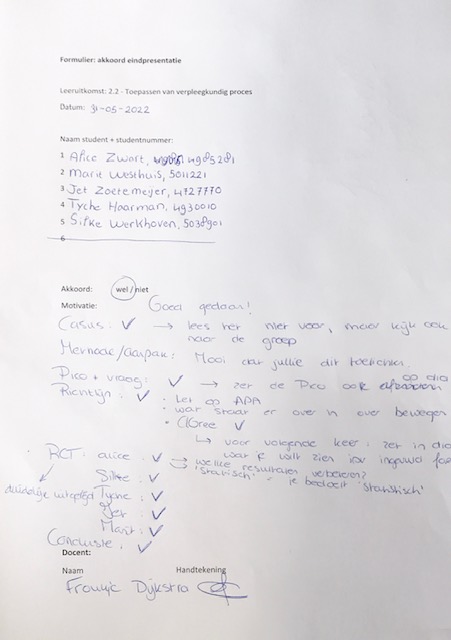 Formulier: akkoord eindpresentatie
Leeruitkomst: 2.2 - Toepassen van verpleegkundig proces
Datum: 31-05-2022
Naam student + studentnummer:
1 Alice Zwart, 4985281
2 Marit Westhuis, 5011221
3 Jet Zoetemeijer, 4727770
4 Tyche Haarman, 4930010
5 Silke Werkhoven, 5038901
6
Akkoord: wel / niet
Motivatie: Goed gedaan!
Casus: ✓ → lees het niet voor, maar kijk ook
naar de groep
Methode/aanpak: Mooi dat jullie dit toelichten.
Pico + vraag: ✓ → zet de Pico ook op dia
Richtlijn: ✓ • Let op APA
• wat staat er over in over bewegen
• AGree ✓
↳ voor volgende keer: zet in dia
wat je wilt zien
• RCT: alice: ✓ → welke resultaten verbeteren?
→ 'statisch' je bedoelt 'statistisch'
Silke: ✓
duidelijke uitgelegd Tyche: ✓
Jet: ✓
Marit: ✓
Conclusie: ✓
Docent:
Naam Handtekening
Dijkstra